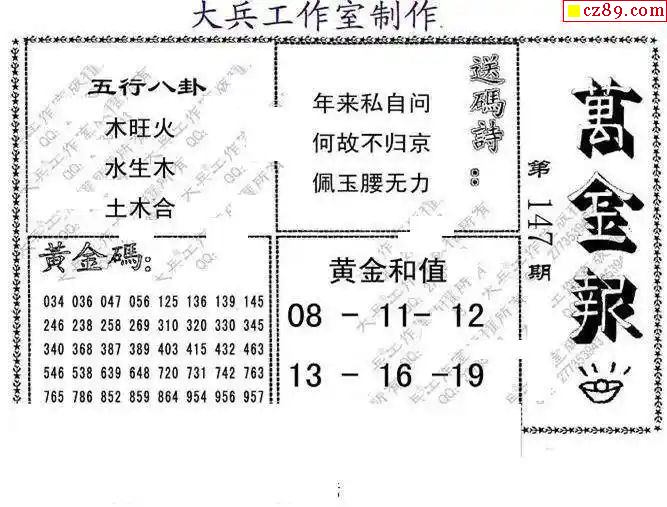 大兵工作室制作
cz89.com
五行八卦
木旺火
水生木
土木合
送碼詩:
年来私自问
何故不归京
佩玉腰无力
萬金報
第147期
黃金碼:
034 036 047 056 125 136 139 145
246 238 258 269 310 320 330 345
340 368 387 389 403 415 432 463
546 538 639 648 720 731 742 763
765 786 852 859 864 954 956 957
黄金和值
08 - 11- 12
13 - 16 -19